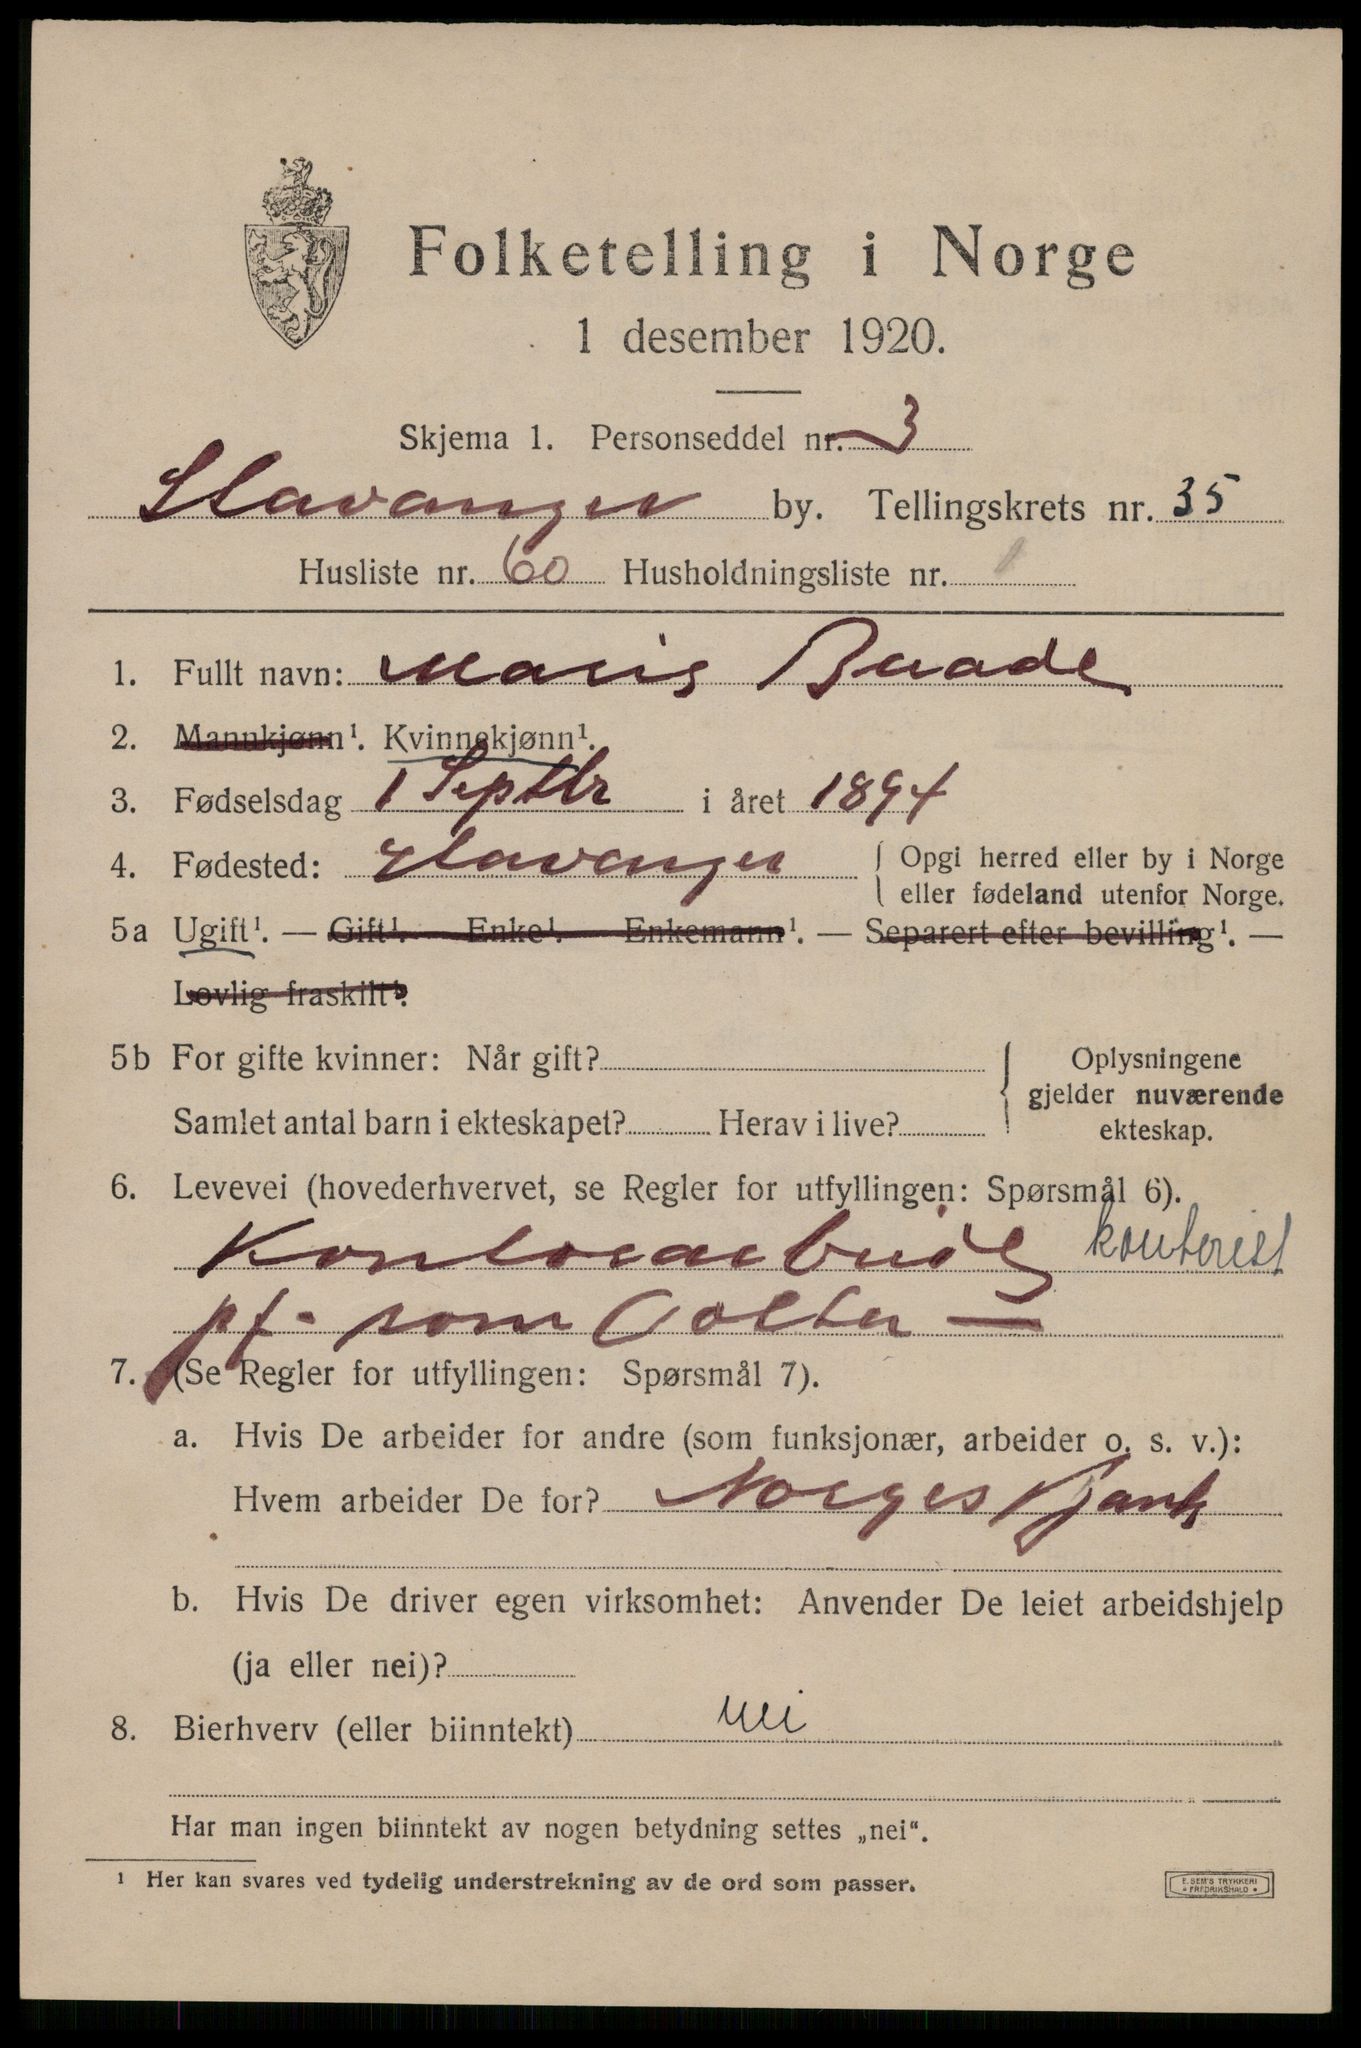 Folketelling i Norge
1 desember 1920.
Skjema 1. Personseddel nr. 3
Stavanger by. Tellingskrets nr. 35
Husliste nr. 60 Husholdningsliste nr. 1
1. Fullt navn: Marie Baade
2. Mannkjønn¹. Kvinnekjønn¹.
3. Fødselsdag 1 Septbr i året 1894
4. Fødested: Stavanger { Opgi herred eller by i Norge
eller fødeland utenfor Norge.
5a Ugift¹. — Gift¹. Enke¹. Enkemann¹. — Separert efter bevilling¹. —
Lovlig fraskilt¹.
5b For gifte kvinner: Når gift? { Oplysningene
gjelder nuværende
Samlet antal barn i ekteskapet? Herav i live?
ekteskap.
6. Levevei (hovederhvervet, se Regler for utfyllingen: Spørsmål 6).
Kontorarbeide kontorist
som
7. (Se Regler for utfyllingen: Spørsmål 7).
a. Hvis De arbeider for andre (som funksjonær, arbeider o. s. v.):
Hvem arbeider De for? Norges Bank
b. Hvis De driver egen virksomhet: Anvender De leiet arbeidshjelp
(ja eller nei)?
8. Bierhverv (eller biinntekt) nei
Har man ingen biinntekt av nogen betydning settes „nei".
¹ Her kan svares ved tydelig understrekning av de ord som passer.
E. SEM'S TRYKKERI
FREDRIKSHALD